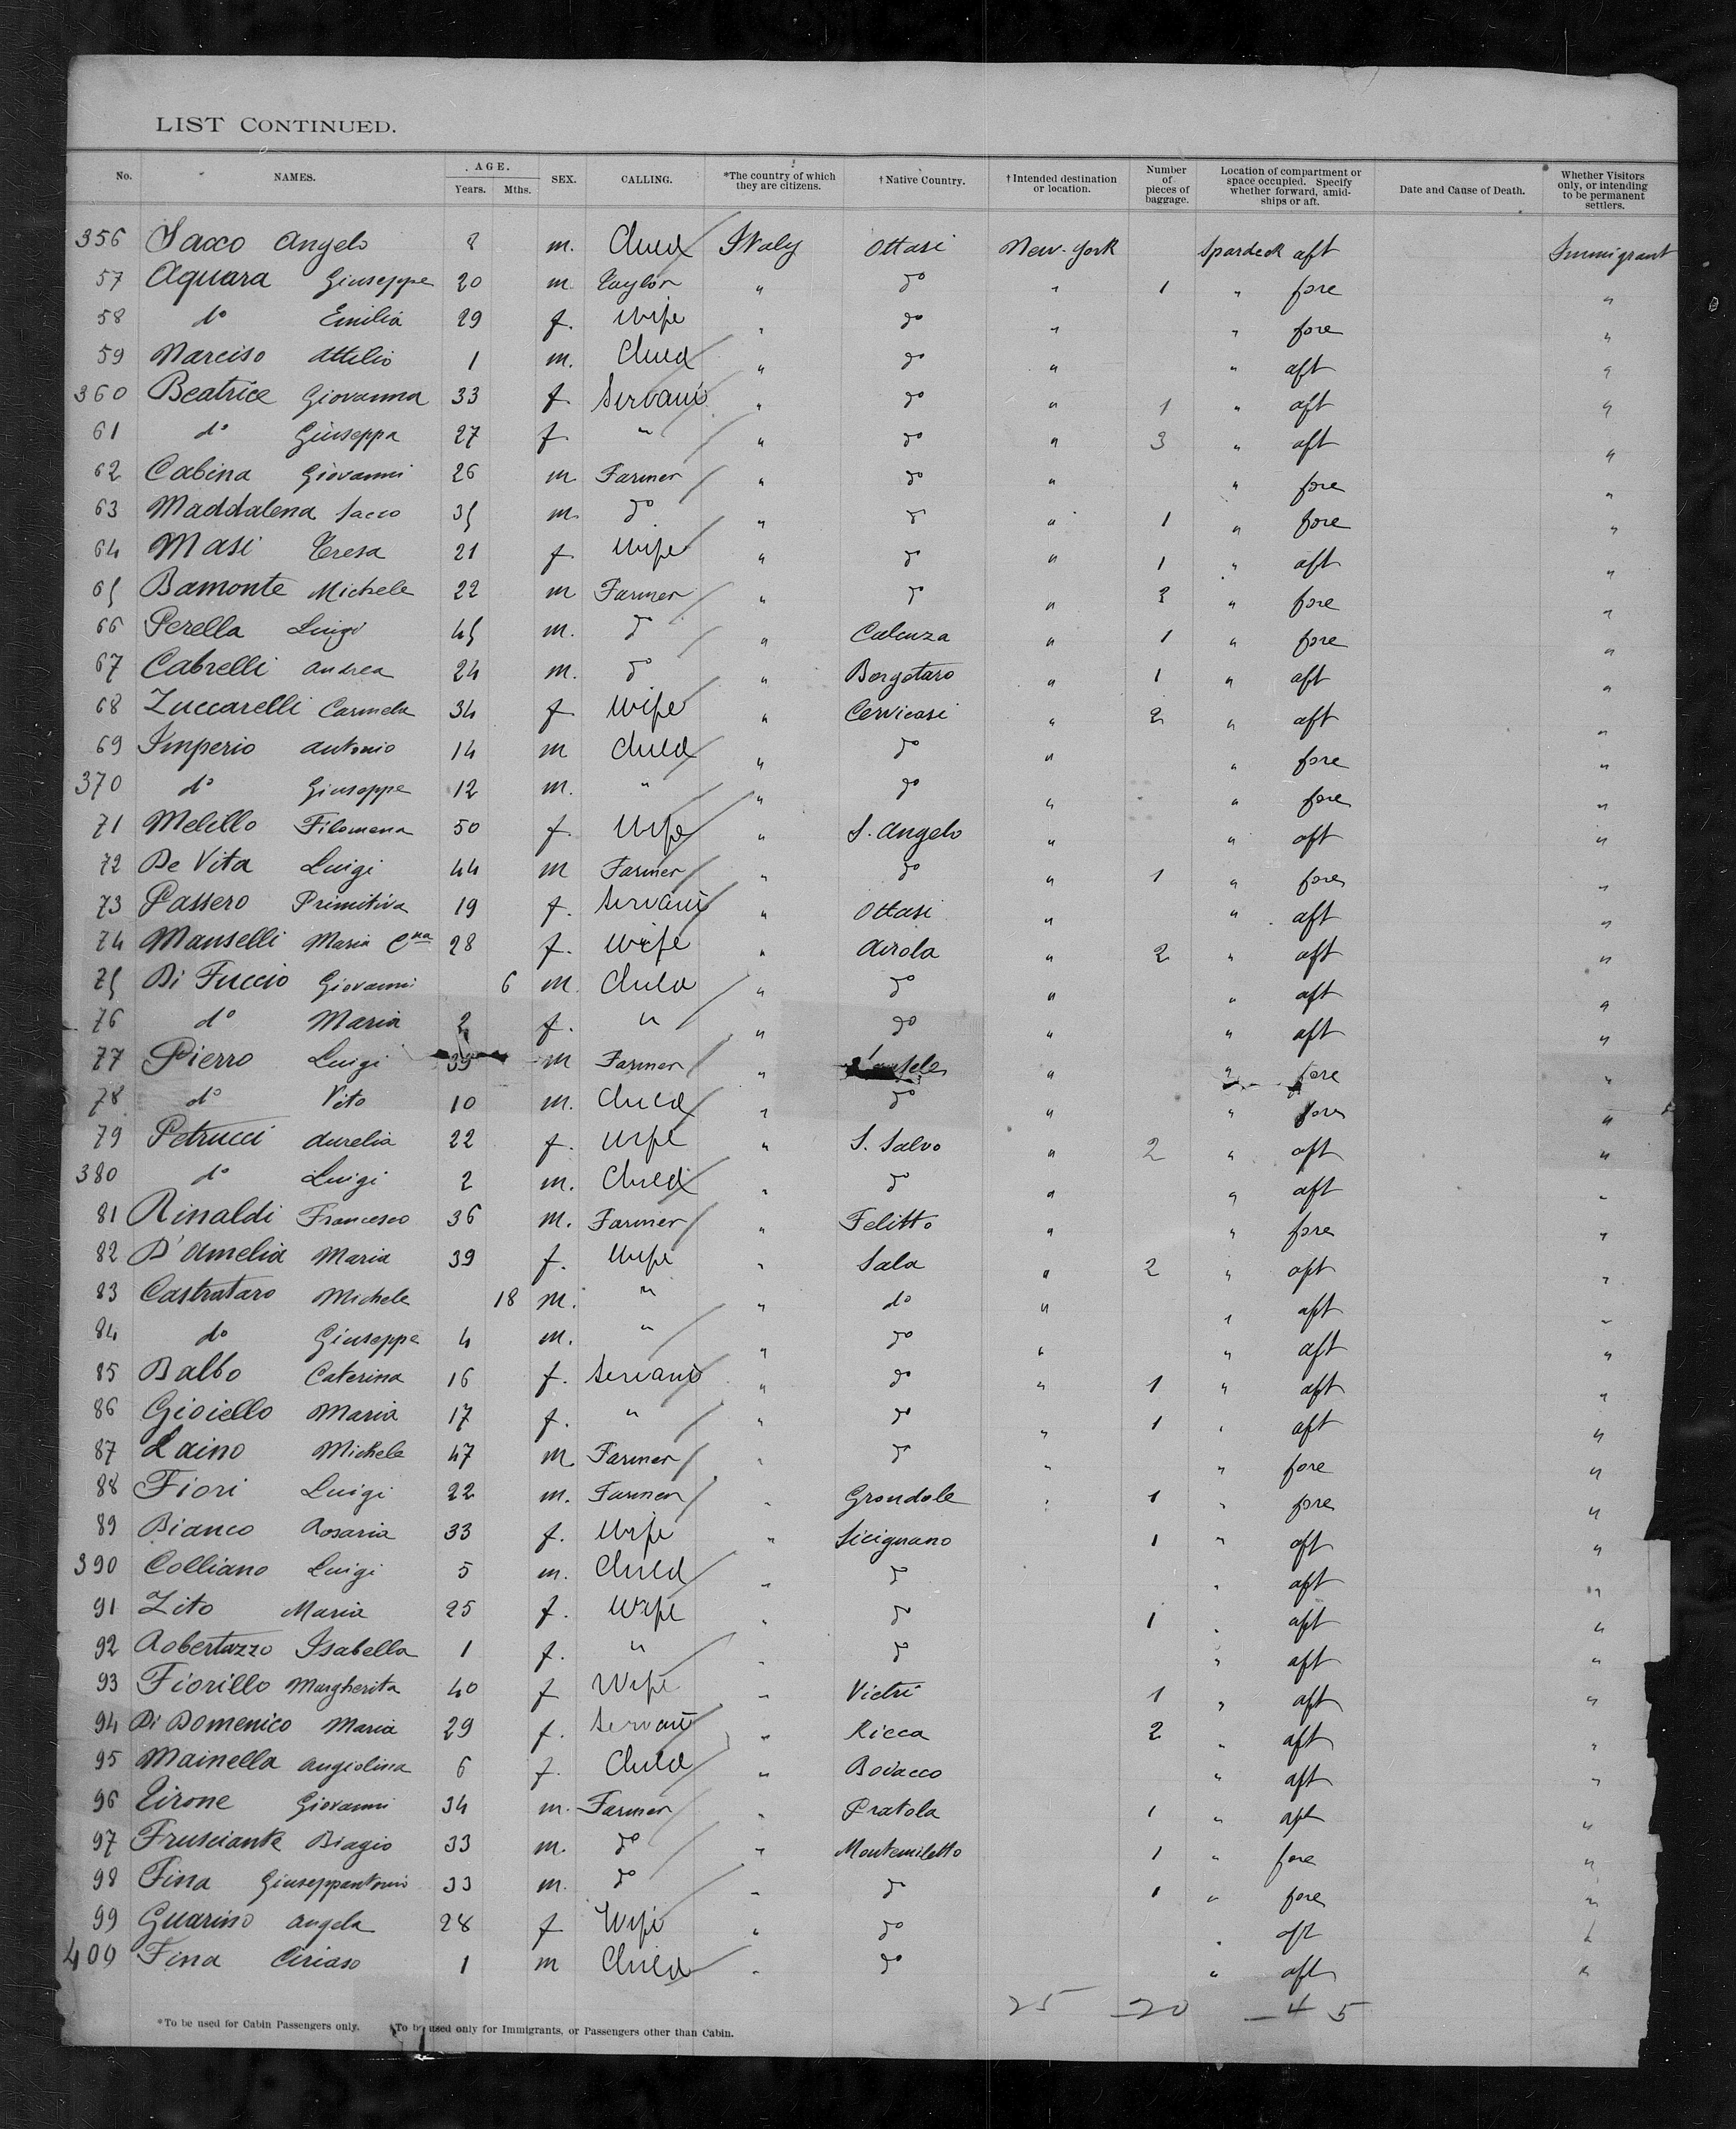 LIST CONTINUED.
No. NAMES. AGE. Years. Mths. SEX. CALLING. *The country of which they are citizens. †Native Country. †Intended destination or location. Number of pieces of baggage. Location of compartment or space occupied. Specify whether forward, amidships or aft. Date and Cause of Death. Whether Visitors only, or intending to be permanent settlers.
356 Sacco Angelo 8 m. Child Italy Ottasi New-York Spardeck aft Immigrant
57 Aquara Giuseppe 20 m Taylor " do " 1 " fore "
58 do Emilia 29 f. Wife " do " " fore "
59 Narciso Attilio 1 m. Child " do " " aft "
360 Beatrice Giovanna 33 f. Servant " do " 1 " aft "
61 do Giuseppa 27 f " " do " 3 " aft "
62 Cabina Giovanni 26 m Farmer " do " " fore "
63 Maddalena Sacco 35 m. do " do " 1 " fore "
64 Masi Teresa 21 f Wife " do " 1 " aft "
65 Bamonte Michele 22 m Farmer " do " 2 " fore "
66 Perella Luigi 45 m. do " Calenza " 1 " fore "
67 Cabrelli Andrea 24 m. do " Borgotaro " 1 " aft "
68 Zuccarelli Carmela 34 f Wife " Cervicasi " 2 " aft "
69 Imperio Antonio 14 m Child " do " " fore "
370 do Giuseppe 12 m. " " do " " fore "
71 Melillo Filomena 50 f. Wife " S. Angelo " " aft "
72 De Vita Luigi 44 m Farmer " do " 1 " fore "
73 Passero Primitiva 19 f. Servant " Ottasi " " aft "
74 Manselli Maria Cna 28 f. Wife " Airola " 2 " aft "
75 Di Fuccio Giovanni 6 m. Child " do " " aft "
76 do Maria 2 f. " " do " " aft "
77 Pierro Luigi 39 m Farmer " " " fore "
78 do Vito 10 m. Child " do " " fore "
79 Petrucci Aurelia 22 f. Wife " S. Salvo " 2 " aft "
380 do Luigi 2 m. Child " do " " aft "
81 Rinaldi Francesco 36 m. Farmer " Felitto " " fore "
82 D'Amelia Maria 39 f. Wife " Sala " 2 " aft "
83 Castrataro Michele 18 m. " " do " " aft "
84 do Giuseppe 4 m. " " do " " aft "
85 Balbo Caterina 16 f. Servant " do " 1 " aft "
86 Gioiello Maria 17 f. " " do " 1 " aft "
87 Laino Michele 47 m. Farmer " do " " fore "
88 Fiori Luigi 22 m. Farmer " Grondole " 1 " fore "
89 Bianco Rosaria 33 f. Wife " Sicignano 1 " aft "
390 Colliano Luigi 5 m. Child " do " aft "
91 Zito Maria 25 f. Wife " do 1 " aft "
92 Robertazzo Isabella 1 f. " " do " aft "
93 Fiorillo Margherita 40 f Wife " Vietri 1 " aft "
94 Di Domenico Maria 29 f. Servant " Ricca 2 " aft "
95 Mainella Angiolina 6 f. Child " Boiacco " aft "
96 Tirone Giovanni 34 m. Farmer " Pratola 1 " aft "
97 Frusciante Biagio 33 m. do " Montemiletto 1 " fore "
98 Fina Giuseppantonio 33 m. do " do 1 " fore "
99 Guarino Angela 28 f Wife " do " aft "
400 Fina Ciriaso 1 m Child " do " aft "
25 20 4 5
*To be used for Cabin Passengers only. †To be used only for Immigrants, or Passengers other than Cabin.